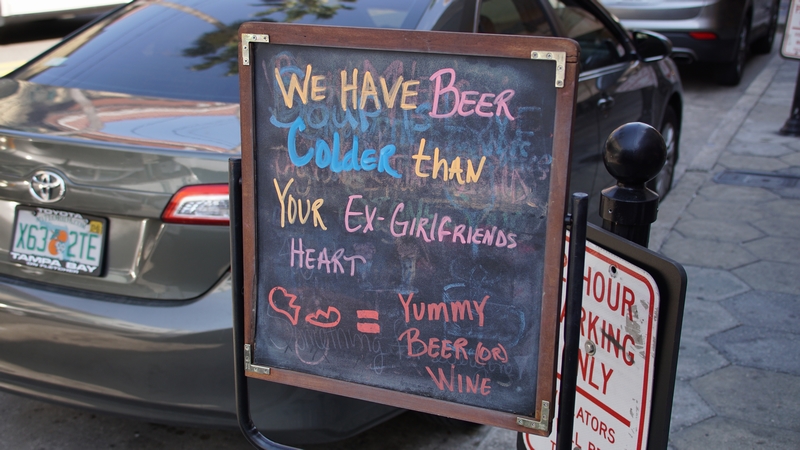 WE HAVE BEER
COLDER than
YOUR EX-GIRLFRIENDS
HEART
= YUMMY
BEER (OR)
WINE
TOYOTA
TAMPA BAY
HOUR
PARKING
ONLY